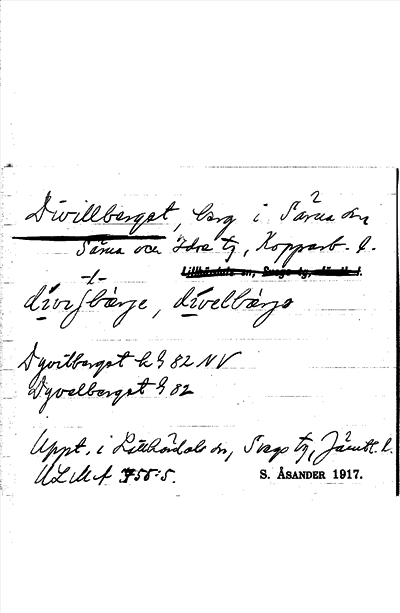 Divillberget, berg i Särna sn
Särna och Idre tg, Kopparb. l.
Lillhärdals sn, Svegs tg, Jämtl. l.
-l-
divisbärje, divelbärje
Dyvilberget h 982 NV
Dyvelberget 982
Uppt. i Lillhärdals sn, Svegs tg, Jämtl. l.
ULMA 755:5. S. ÅSANDER 1917.